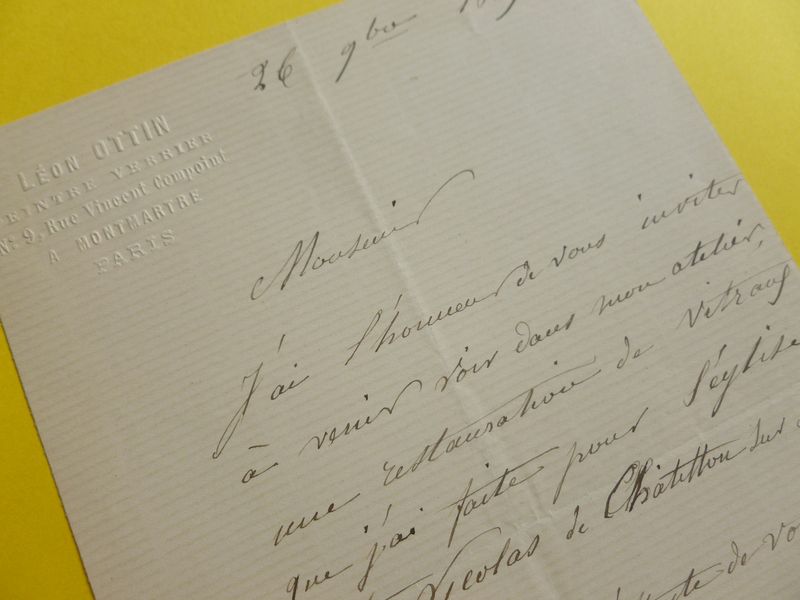 26 9bre
LÉON OTTIN
PEINTRE VERRIER
No. 9, Rue Vincent Compoint
A MONTMARTRE
PARIS
Monsieur
J'ai l'honneur de vous inviter
à venir voir dans mon atelier,
une restauration de vitraux
que j'ai faite pour l'église
Nicolas de Châtillon sur
de